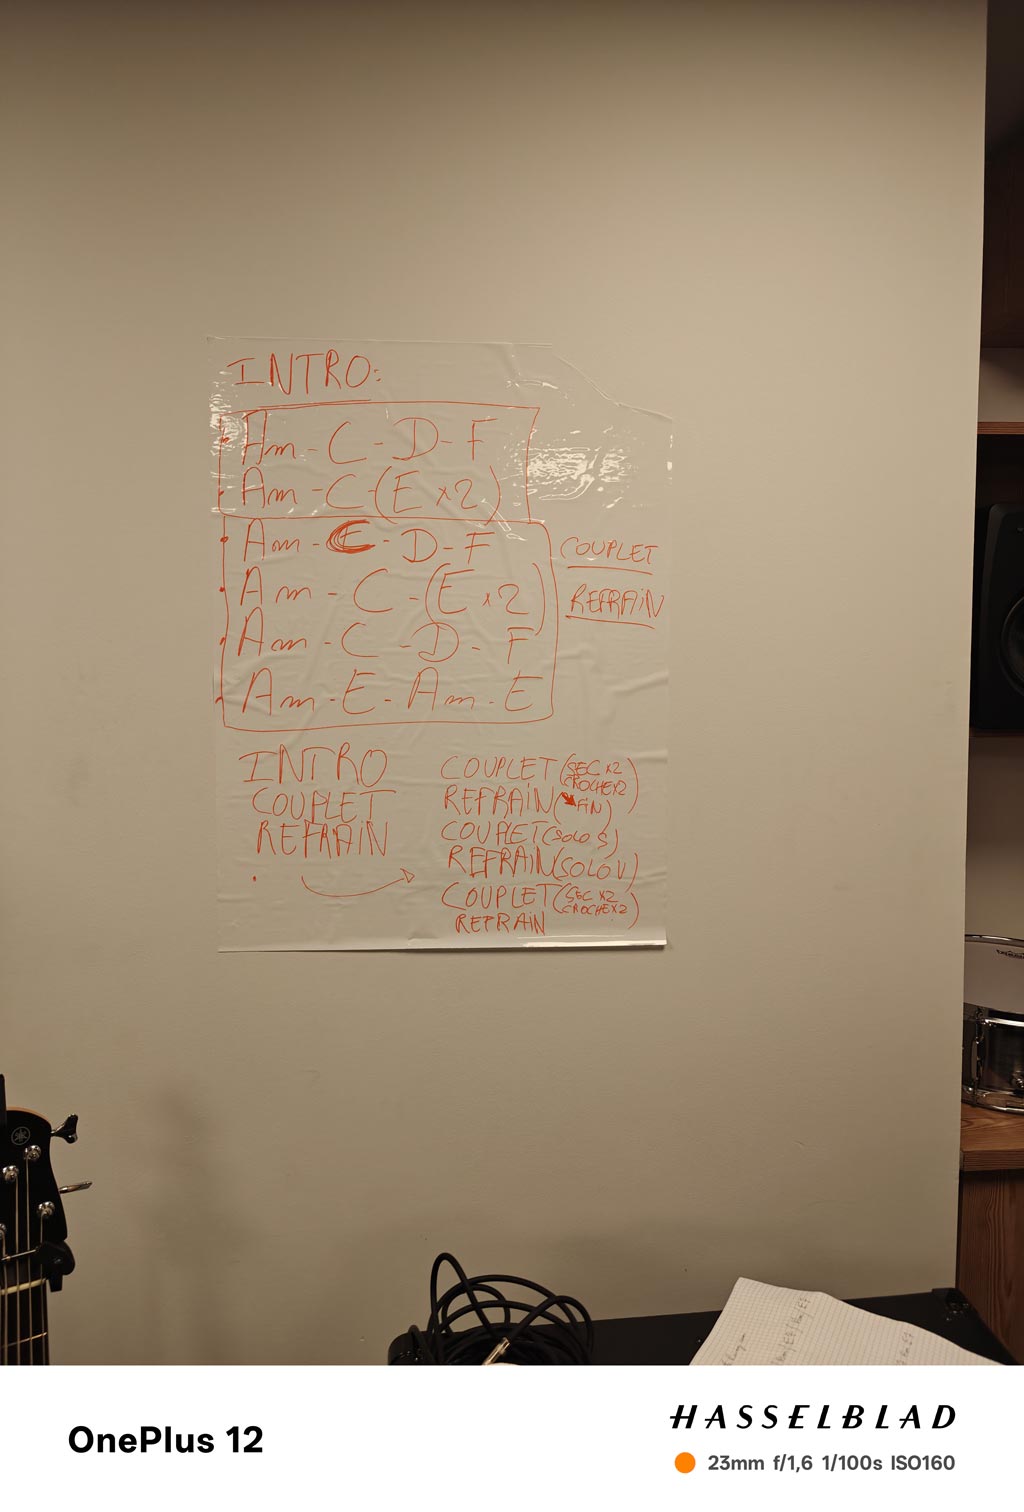 INTRO:
Am - C - D - F
Am - C - (E x2)
Am - C - D - F
Am - C - (E x2)
Am - C - D - F
Am - E - Am - E
COUPLET
REFRAIN
INTRO
COUPLET
REFRAIN
COUPLET (SEC x2
CROCHE x2)
REFRAIN (FIN)
COUPLET (SOLO S)
REFRAIN (SOLO V)
COUPLET (SEC x2
CROCHE x2)
REFRAIN
OnePlus 12
HASSELBLAD
23mm f/1,6 1/100s ISO160